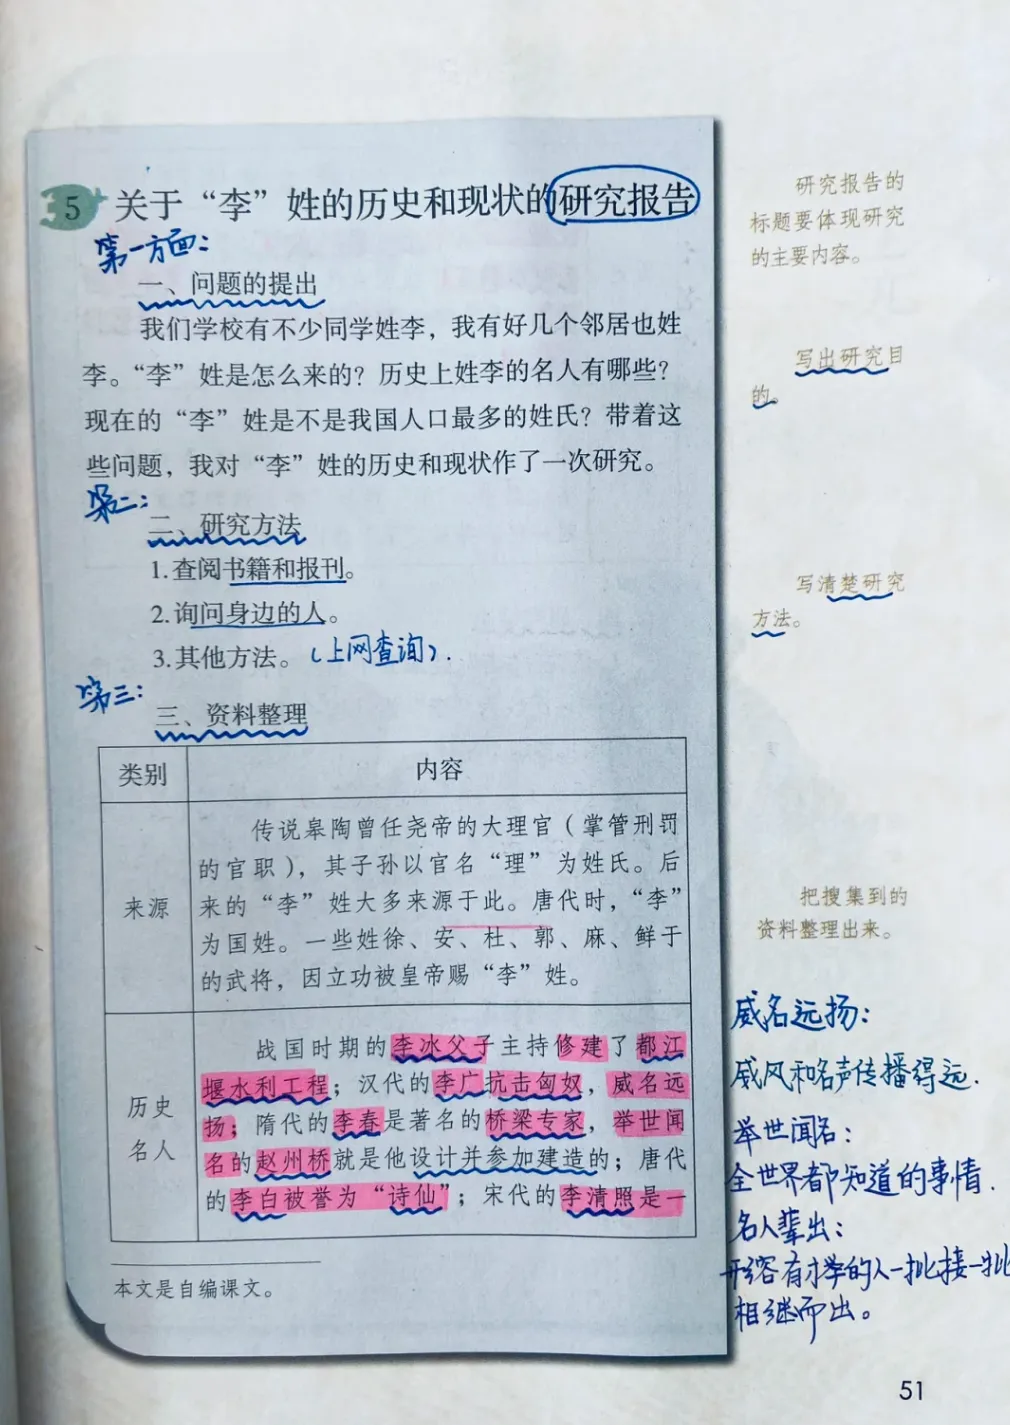 5 关于“李”姓的历史和现状的研究报告
第一方面：
一、问题的提出
我们学校有不少同学姓李，我有好几个邻居也姓
李。“李”姓是怎么来的？历史上姓李的名人有哪些？
现在的“李”姓是不是我国人口最多的姓氏？带着这
些问题，我对“李”姓的历史和现状作了一次研究。
第二：
二、研究方法
1.查阅书籍和报刊。
2.询问身边的人。
3.其他方法。（上网查询）.
第三：
三、资料整理
类别
内容
来源
传说皋陶曾任尧帝的大理官（掌管刑罚
的官职），其子孙以官名“理”为姓氏。后
来的“李”姓大多来源于此。唐代时，“李”
为国姓。一些姓徐、安、杜、郭、麻、鲜于
的武将，因立功被皇帝赐“李”姓。
历史
名人
战国时期的李冰父子主持修建了都江
堰水利工程；汉代的李广抗击匈奴，威名远
扬；隋代的李春是著名的桥梁专家，举世闻
名的赵州桥就是他设计并参加建造的；唐代
的李白被誉为“诗仙”；宋代的李清照是一
本文是自编课文。
研究报告的
标题要体现研究
的主要内容。
写出研究目
的。
写清楚研究
方法。
把搜集到的
资料整理出来。
威名远扬：
威风和名声传播得远.
举世闻名：
全世界都知道的事情.
名人辈出：
形容有才学的人一批接一批
相继而出。
51